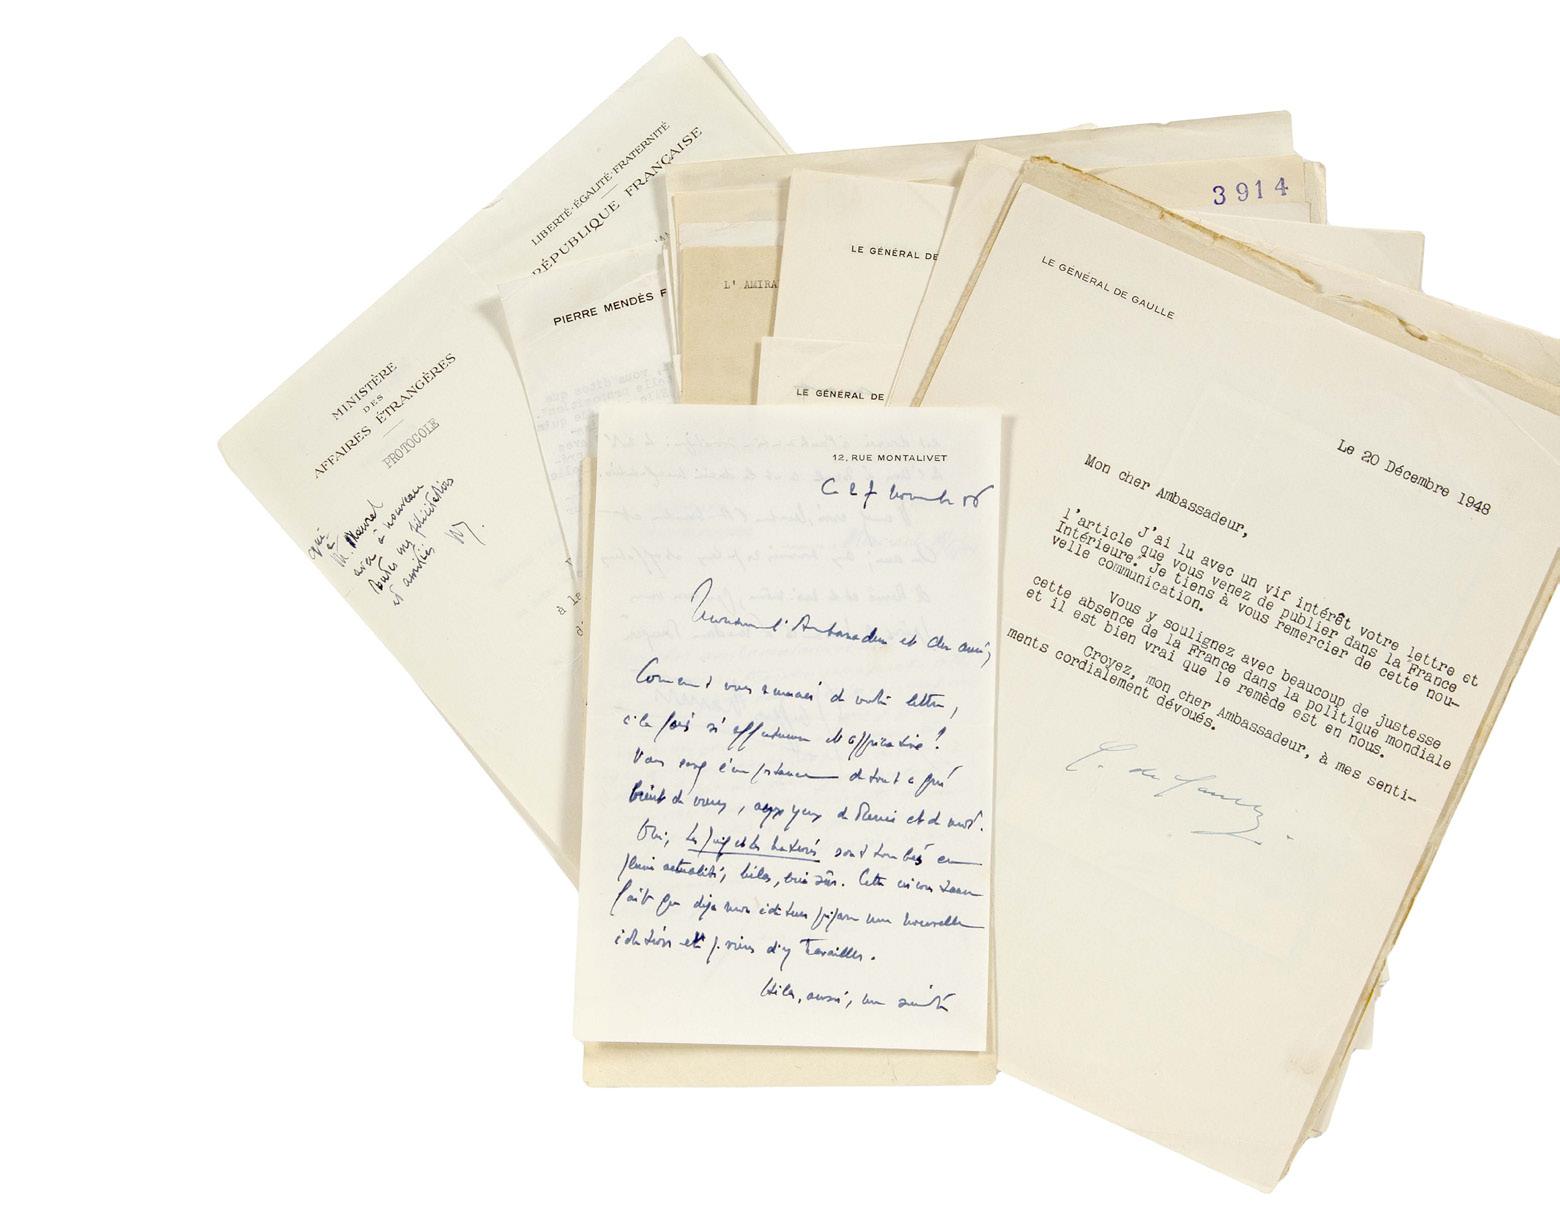 LIBERTÉ·ÉGALITÉ·FRATERNITÉ
RÉPUBLIQUE FRANÇAISE
MINISTÈRE
DES
AFFAIRES ÉTRANGÈRES
PROTOCOLE
à
avec à nouveau
toutes mes félicitations
et amitiés
PIERRE MENDÈS F
à le
L' AMIRA
LE GÉNÉRAL DE
LE GÉNÉRAL DE
3914
12, RUE MONTALIVET
Ce 27 novembre 86
Monsieur l'Ambassadeur et cher ami,
Comment vous remercier de votre lettre,
à la fois si affectueuse et
Vous savez l'importance de tout ce qui
vient de vous, aux yeux de et de moi.
Oui, sont tombés en
pleine actualité, hélas, bien sûr. Cette circonstance
fait que déjà mon éditeur prépare une nouvelle
édition et je viens d'y travailler.
Hélas, aussi, une
LE GÉNÉRAL DE GAULLE
Le 20 Décembre 1948
Mon cher Ambassadeur,
J'ai lu avec un vif intérêt votre lettre et
l'article que vous venez de publier dans la "France
Intérieure". Je tiens à vous remercier de cette nou-
velle communication.
Vous y soulignez avec beaucoup de justesse
cette absence de la France dans la politique mondiale
et il est bien vrai que le remède est en nous.
Croyez, mon cher Ambassadeur, à mes senti-
ments cordialement dévoués.
C. de Gaulle